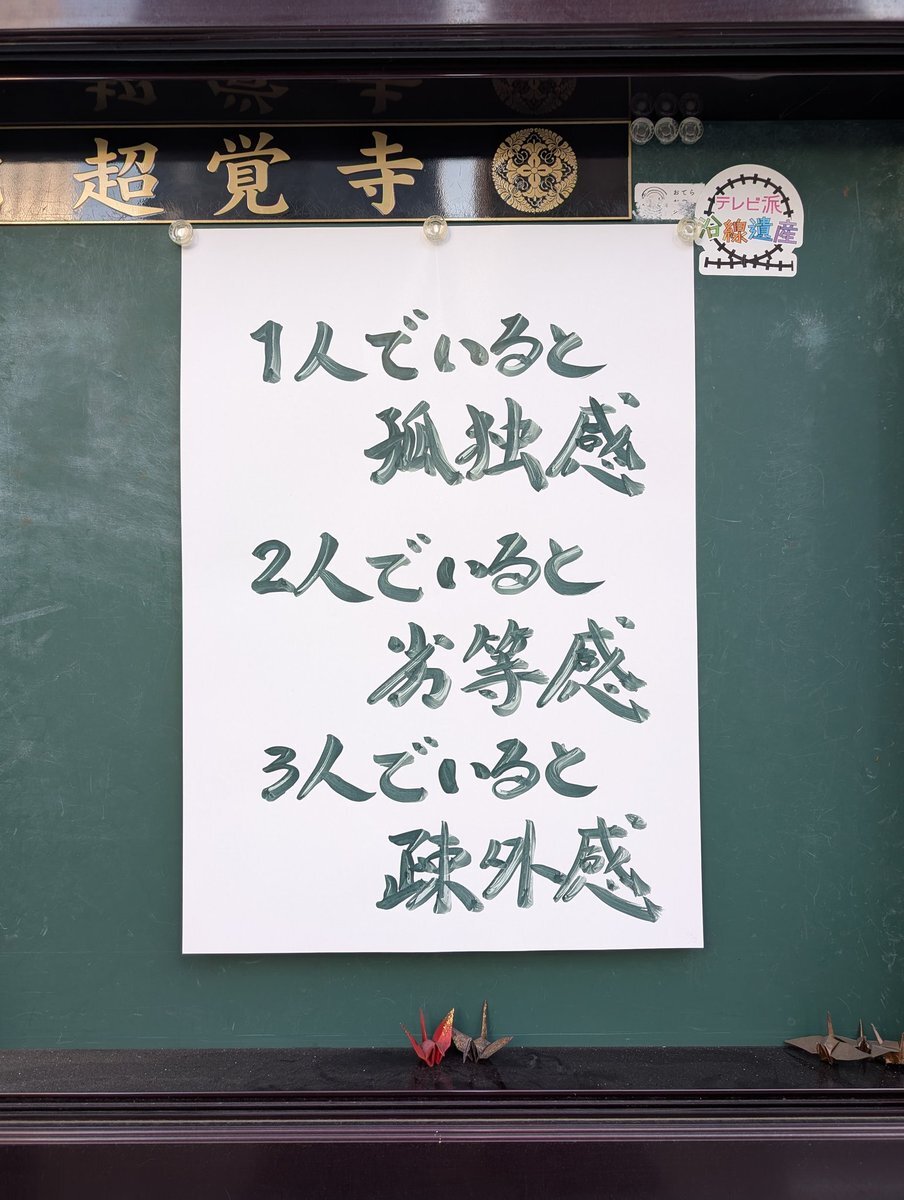 超覚寺
おてら
テレビ派
沿線遺産
1人でいると
孤独感
2人でいると
劣等感
3人でいると
疎外感